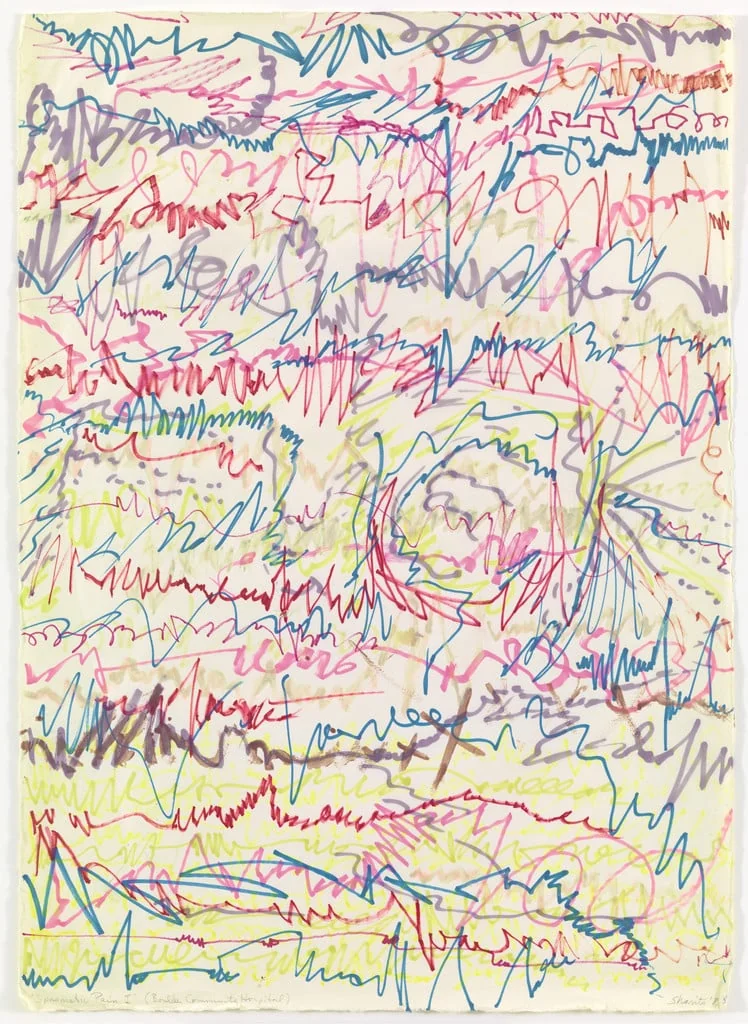 Spasmodic Pain I (Boulder Community Hospital) Sharits '8